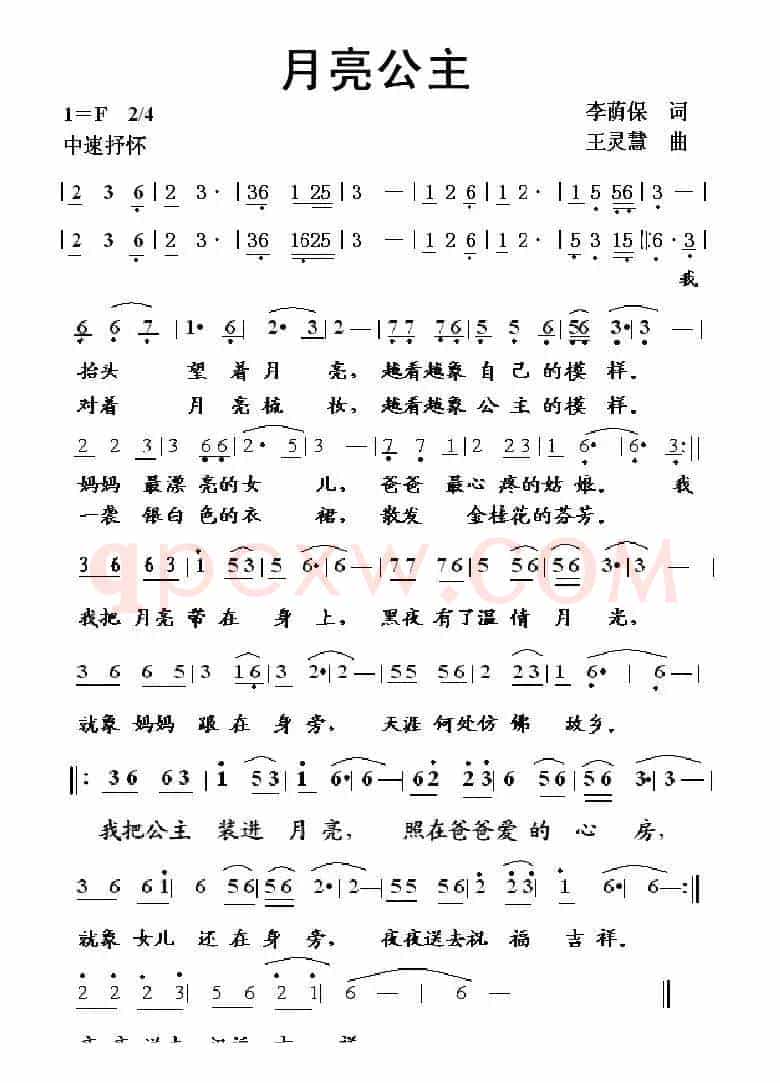 月亮公主
1=F 2/4 李荫保 词
中速抒怀 王灵慧 曲
| 2 3 6 | 2 3· | 36 1 25 | 3 — | 1 2 6 | 1 2· | 1 5 56 | 3 — |
| 2 3 6 | 2 3· | 36 1625 | 3 — | 1 2 6 | 1 2· | 5 3 15 |: 6· 3 |
我
6 6 7 | 1· 6 | 2· 3 | 2 — | 77 76 | 5 5 6 | 56 3· | 3 — |
抬头 望着月亮，越看越象自己的模样。
对着 月亮梳妆，越看越象公主的模样。
2 2 3 | 3 66 | 2· 5 | 3 — | 7 7 1 | 2 23 | 1 6· | 6 3 :||
妈妈 最漂亮的女儿，爸爸 最心疼的姑娘。 我
一袭 银白色的衣裙，散发 金桂花的芬芳。
qpcxw.COM
36 63 | 1 53 | 5 6· | 6 — | 77 76 | 5 56 | 56 3· | 3 — |
我把月亮带在身上，黑夜有了温情月光，
3 6 6 5 | 3 16 | 3 2· | 2 — | 55 56 | 2 23 | 1 6· | 6 — |
就象妈妈跟在身旁，天涯何处仿佛故乡。
||: 36 63 | 1 53 | 1 6· | 6 — | 62 23 | 6 56 | 56 3· | 3 — |
我把公主装进月亮，照在爸爸爱的心房，
3 6 61 | 6 56 | 56 2· | 2 — | 55 56 | 2 23 | 1 6· | 6 — :||
就象女儿还在身旁，夜夜送去祝福吉祥。
2 2 2 3 | 5 6 2 1 | 6 — | 6 — ||